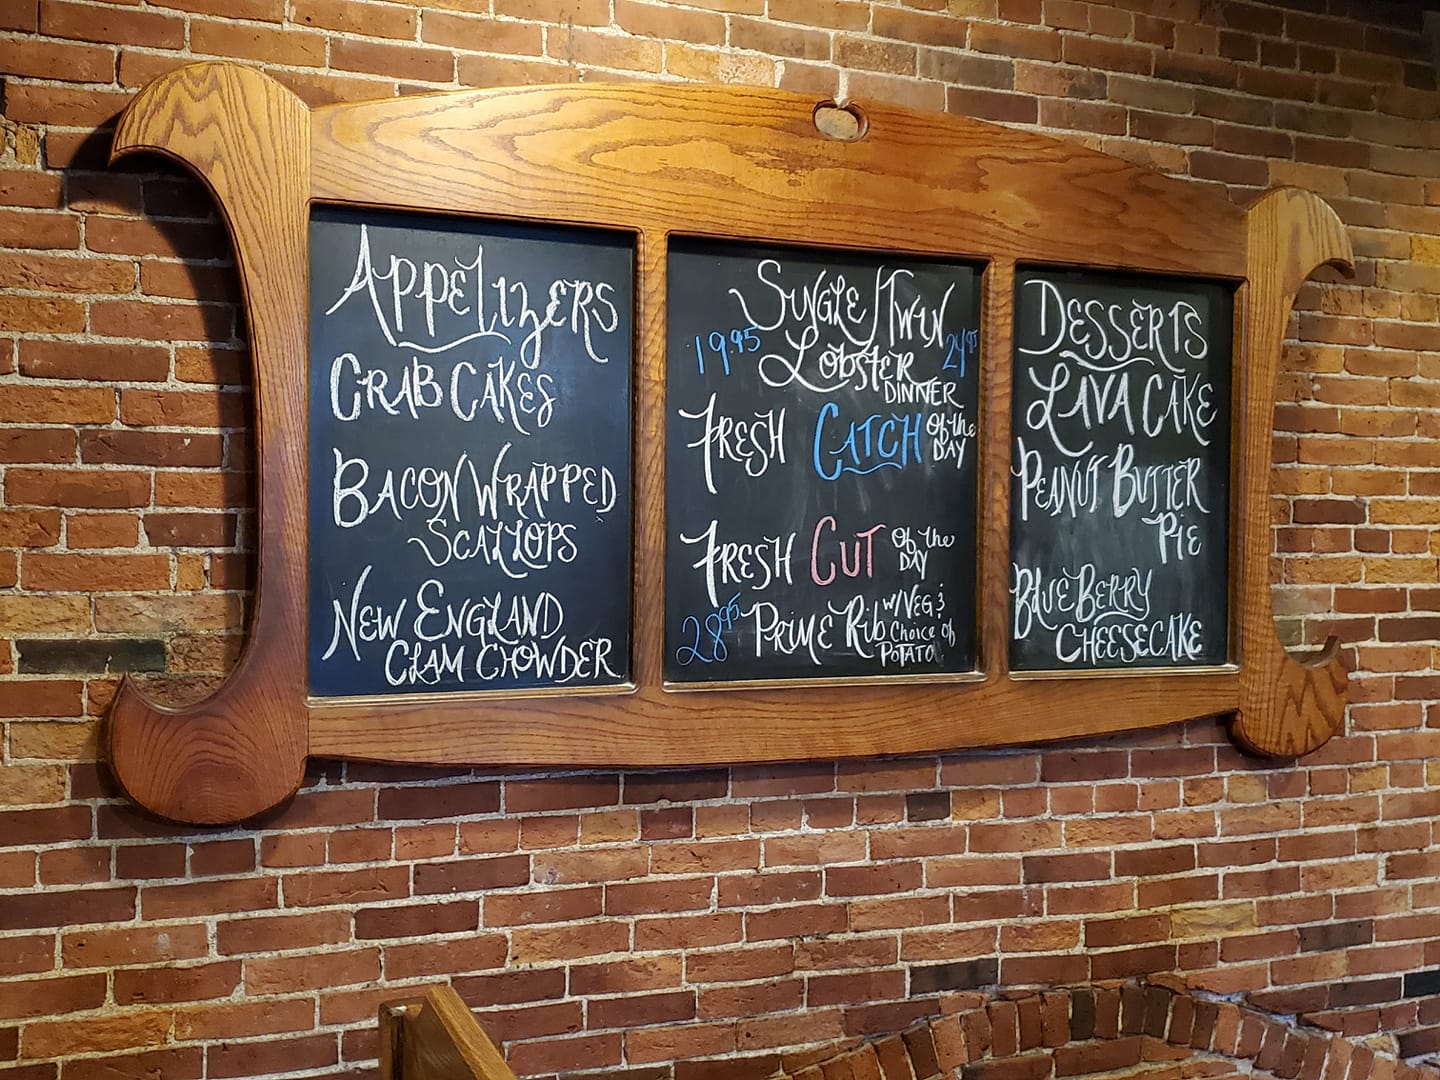 APPETIZERS
CRAB CAKES
BACON WRAPPED
SCALLOPS
NEW ENGLAND
CLAM CHOWDER
SINGLE/TWIN
19.95 LOBSTER 24.95
DINNER
FRESH CATCH Of the
DAY
FRESH CUT Of the
DAY
28.95 PRIME RIB W/VEG &
Choice of
POTATO
DESSERTS
LAVA CAKE
PEANUT BUTTER
PiE
BLUEBERRY
CHEESECAKE